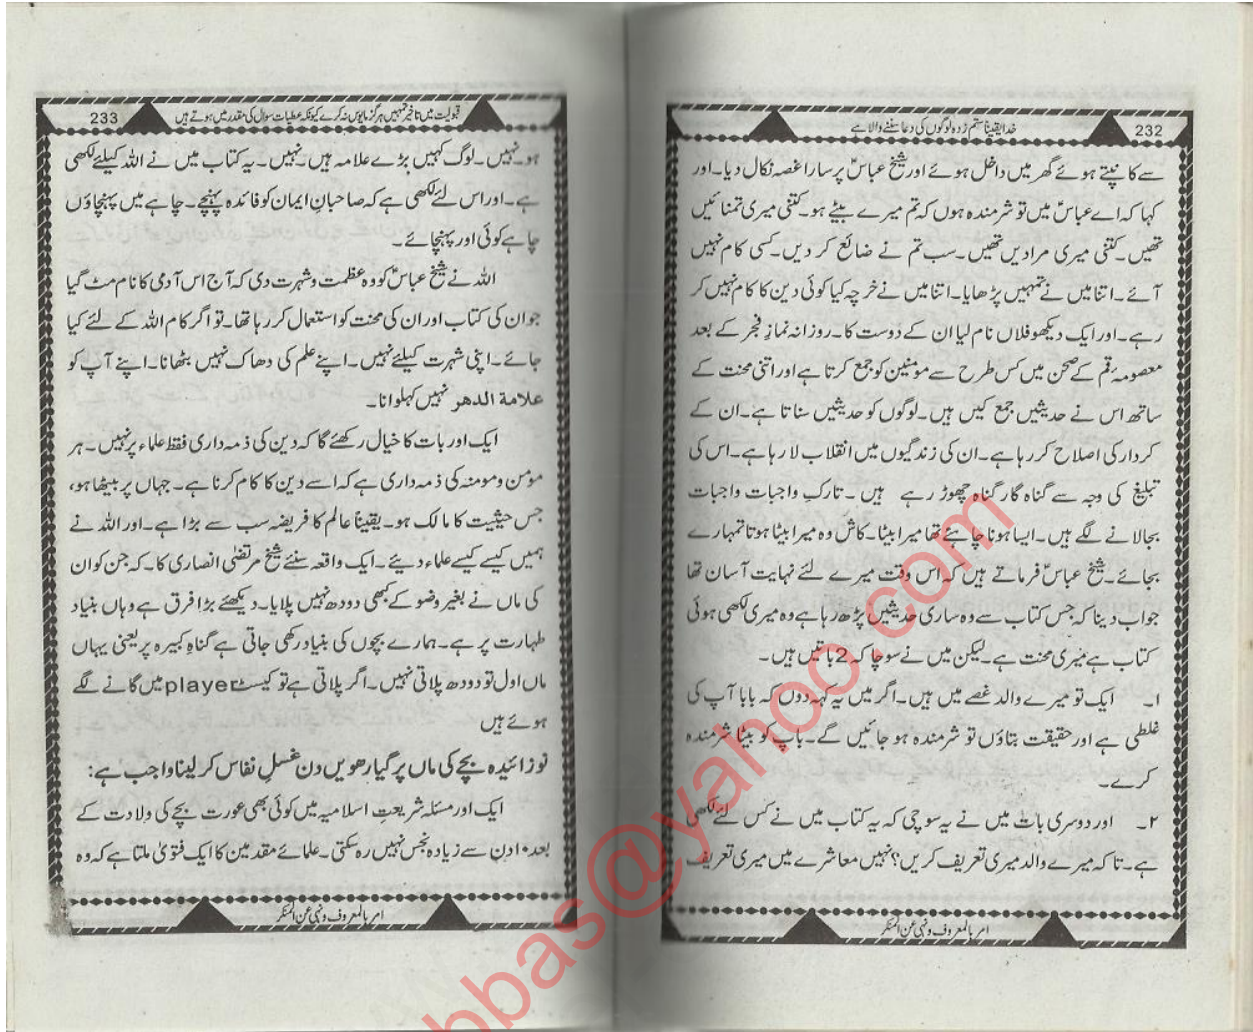 خدا یقیناً ستم زدہ لوگوں کی دعا سننے والا ہے 232
سے کانپتے ہوئے گھر میں داخل ہوئے اور شیخ عباسؒ پر سارا غصہ نکال دیا۔ اور
کہا کہ اے عباسؒ میں تو شرمندہ ہوں کہ تم میرے بیٹے ہو۔ کتنی میری تمنائیں
تھیں۔ کتنی میری مرادیں تھیں۔ سب تم نے ضائع کر دیں۔ کسی کام نہیں
آئے۔ اتنا میں نے تمہیں پڑھایا۔ اتنا میں نے خرچہ کیا کوئی دین کا کام نہیں کر
رہے۔ اور ایک دیکھو فلاں نام لیا ان کے دوست کا۔ روزانہ نماز فجر کے بعد
معصومہ قم کے صحن میں کس طرح سے مومنین کو جمع کرتا ہے اور اتنی محنت کے
ساتھ اس نے حدیثیں جمع کیں ہیں۔ لوگوں کو حدیثیں سناتا ہے۔ ان کے
کردار کی اصلاح کر رہا ہے۔ ان کی زندگیوں میں انقلاب لا رہا ہے۔ اس کی
تبلیغ کی وجہ سے گناہ گار گناہ چھوڑ رہے ہیں۔ تارکِ واجبات واجبات
بجا لانے لگے ہیں۔ ایسا ہونا چاہئے تھا میرا بیٹا۔ کاش وہ میرا بیٹا ہوتا تمہارے
بجائے۔ شیخ عباسؒ فرماتے ہیں کہ اس وقت میرے لئے نہایت آسان تھا
جواب دینا کہ جس کتاب سے وہ ساری حدیثیں پڑھ رہا ہے وہ میری لکھی ہوئی
کتاب ہے میری محنت ہے۔ لیکن میں نے سوچا کہ 2 باتیں ہیں۔
۱۔ ایک تو میرے والد غصے میں ہیں۔ اگر میں یہ کہہ دوں کہ بابا آپ کی
غلطی ہے اور حقیقت بتاؤں تو شرمندہ ہو جائیں گے۔ باپ کو بیٹا شرمندہ
کرے۔
۲۔ اور دوسری بات میں نے یہ سوچی کہ یہ کتاب میں نے کس لئے لکھی
ہے۔ تاکہ میرے والد میری تعریف کریں؟ نہیں معاشرے میں میری تعریف
امر بالمعروف و نہی عن المنکر
قبولیت میں تاخیر تمہیں ہرگز مایوس نہ کرے کیونکہ عطیات سوال کی مقدر میں ہوتے ہیں 233
ہو۔ نہیں۔ لوگ کہیں بڑے علامہ ہیں۔ نہیں۔ یہ کتاب میں نے اللہ کیلئے لکھی
ہے۔ اور اس لئے لکھی ہے کہ صاحبانِ ایمان کو فائدہ پہنچے۔ چاہے میں پہنچاؤں
چاہے کوئی اور پہنچائے۔
اللہ نے شیخ عباسؒ کو وہ عظمت و شہرت دی کہ آج اس آدمی کا نام مٹ گیا
جو ان کی کتاب اور ان کی محنت کو استعمال کر رہا تھا۔ تو اگر کام اللہ کے لئے کیا
جائے۔ اپنی شہرت کیلئے نہیں۔ اپنے علم کی دھاک نہیں بٹھانا۔ اپنے آپ کو
علامة الدھر نہیں کہلوانا۔
ایک اور بات کا خیال رکھئے گا کہ دین کی ذمہ داری فقط علماء پر نہیں۔ ہر
مؤمن و مومنہ کی ذمہ داری ہے کہ اسے دین کا کام کرنا ہے۔ جہاں پر بیٹھا ہو،
جس حیثیت کا مالک ہو۔ یقیناً عالم کا فریضہ سب سے بڑا ہے۔ اور اللہ نے
ہمیں کیسے کیسے علماء دیئے۔ ایک واقعہ سنئے شیخ مرتضیٰ انصاری کا۔ کہ جن کو ان
کی ماں نے بغیر وضو کے کبھی دودھ نہیں پلایا۔ دیکھئے بڑا فرق ہے وہاں بنیاد
طہارت پر ہے۔ ہمارے بچوں کی بنیاد رکھی جاتی ہے گناہِ کبیرہ پر یعنی یہاں
ماں اول تو دودھ پلاتی نہیں۔ اگر پلاتی ہے تو کیسٹ player میں گانے لگے
ہوئے ہیں
نوزائیدہ بچے کی ماں پر گیارھویں دن غسلِ نفاس کر لینا واجب ہے:
ایک اور مسئلہ شریعتِ اسلامیہ میں کوئی بھی عورت بچے کی ولادت کے
بعد ۱۰ دن سے زیادہ نجس نہیں رہ سکتی۔ علمائے مقدمین کا ایک فتویٰ ملتا ہے کہ وہ
امر بالمعروف و نہی عن المنکر
bbas@yahoo.com